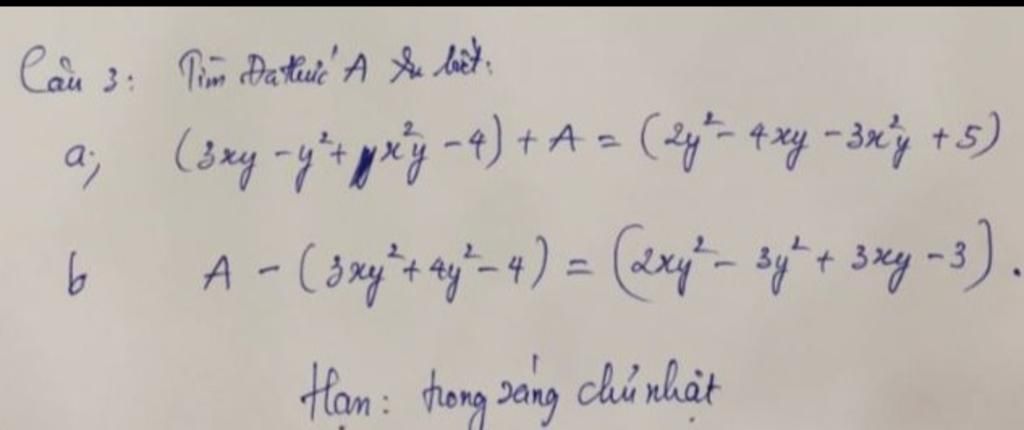 Câu 3: Tìm Đa thức A biết:
a; (3xy - y² + x²y - 4) + A = (2y² - 4xy - 3x²y + 5)
b A - (3xy² + 4y² - 4) = (2xy² - 3y² + 3xy - 3).
Hạn: trong sáng chủ nhật